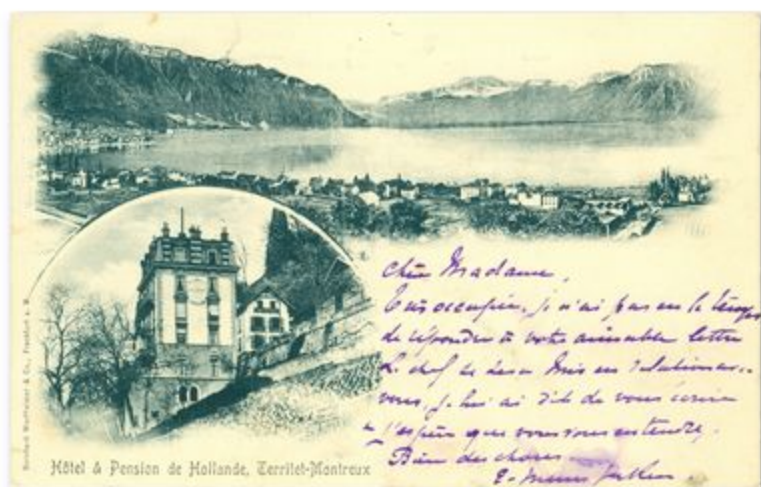 Chère Madame,
Très occupée, je n'ai pas eu le temps
de répondre à votre aimable lettre
Le chef de mis en relation avec
vous, je lui ai dit de vous écrire
j'espère que vous vous entendrez.
Bien des choses
Hôtel & Pension de Hollande, Territet-Montreux